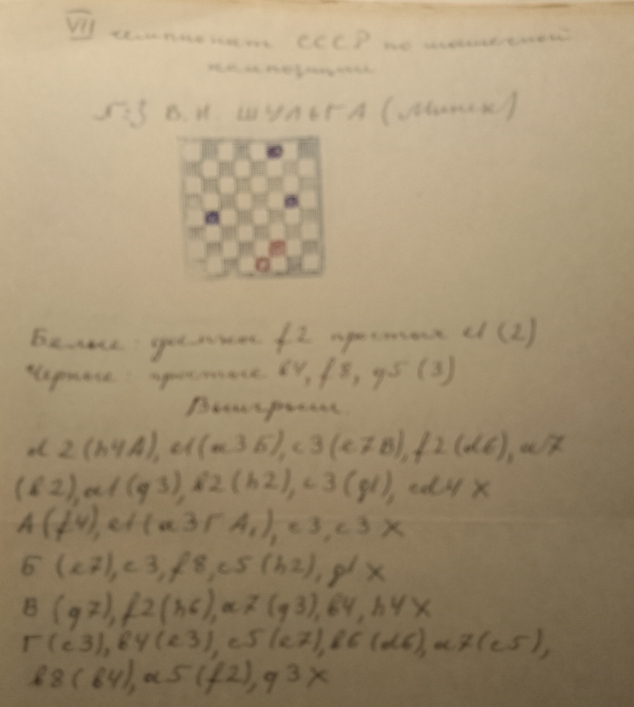 VII чемпионат СССР по шашечной
композиции
№3 В. И. ШУЛЬГА (Минск)
Белые: дамка f2 простая e1 (2)
Черные: простые b4, f8, g5 (3)
Выигрыш.
d2 (h4A), e1 (a3Б), c3 (e7В), f2 (d6), a7
(b2), a1 (g3), b2 (h2), c3 (g1), cd4 X
А (f4), e1 (a3Г А,), c3, c3 X
Б (e7), c3, f8, c5 (h2), g1 X
В (g7), f2 (h6), a7 (g3), b4, h4 X
Г (c3), b4 (e3), c5 (e7), b6 (d6), a7 (c5),
b8 (b4), a5 (f2), g3 X